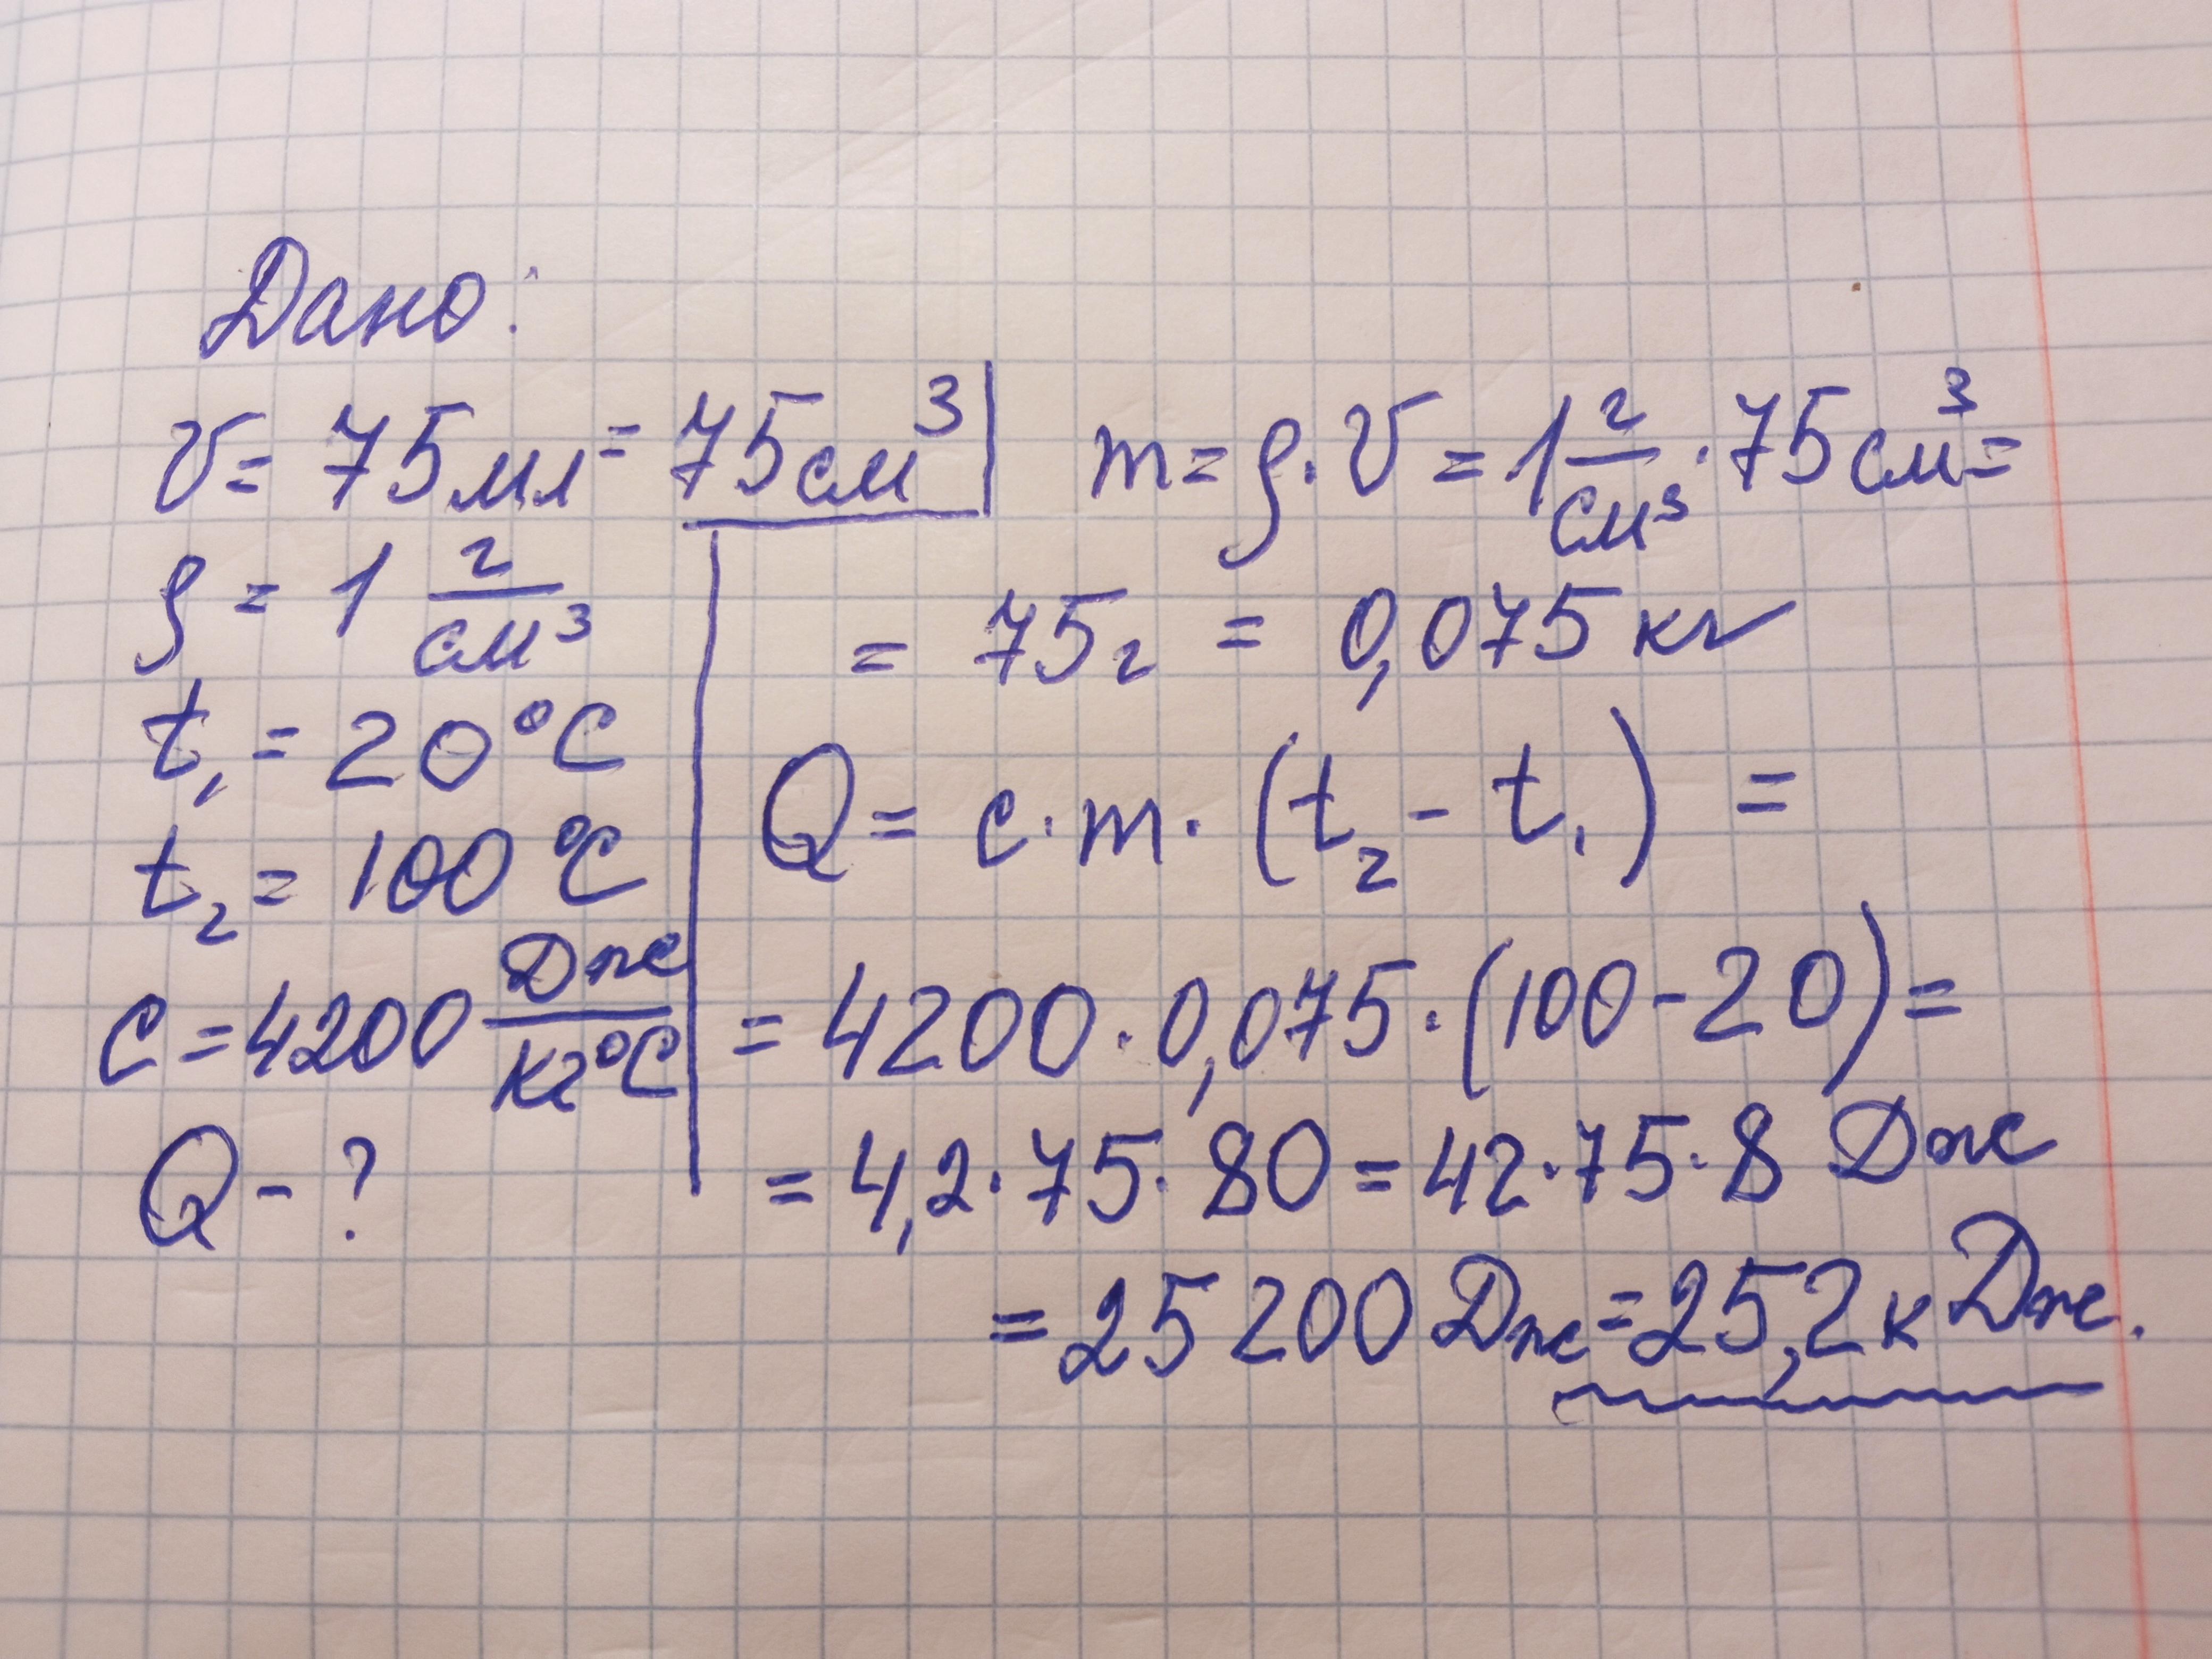 Дано:
V = 75 мл = 75 см³
ρ = 1 г/см³
t₁ = 20°C
t₂ = 100°C
c = 4200 Дж/кг°C
Q - ?
m = ρ · V = 1 г/см³ · 75 см³ =
= 75 г = 0,075 кг
Q = c · m · (t₂ - t₁) =
= 4200 · 0,075 · (100 - 20) =
= 4,2 · 75 · 80 = 42 · 75 · 8 Дж
= 25 200 Дж = 25,2 кДж.